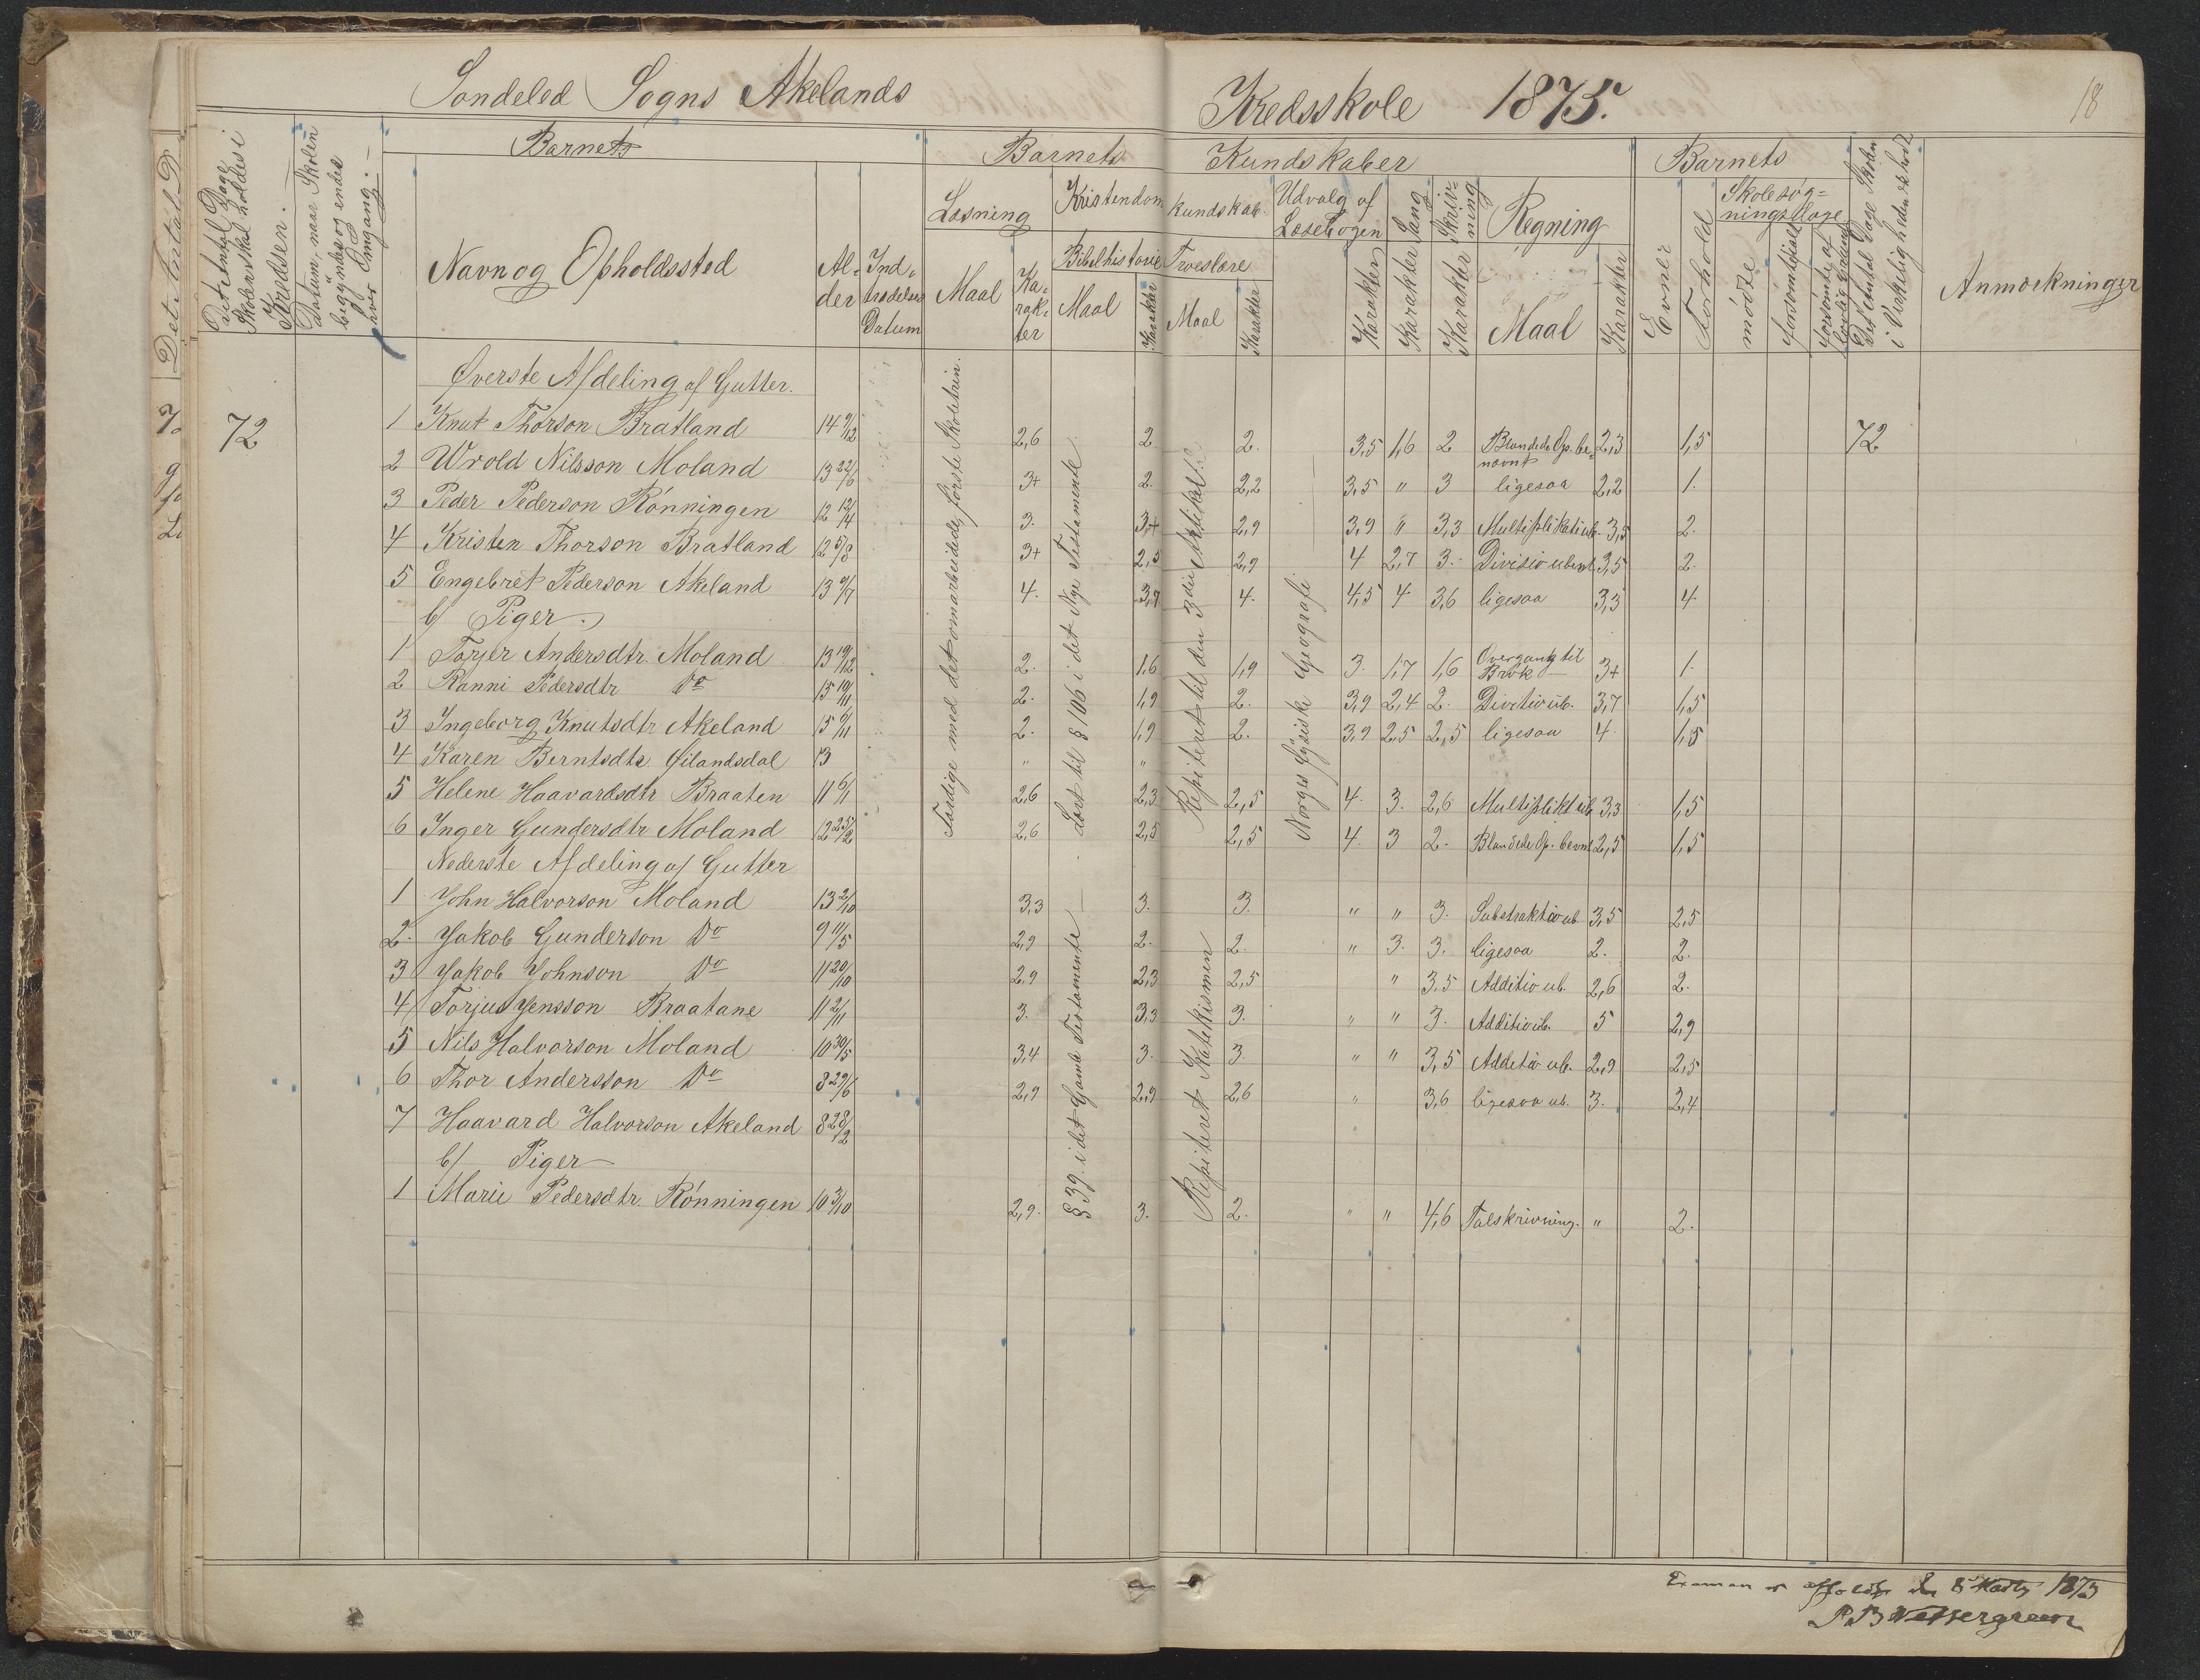 Sondeled Sogns Akelands Kredsskole 1875.
18
Det Antal Dage Skolen skal holdes i Kredsen.
Datum, naar Skolen begyndes og endes hver Omgang.
Barnets
Barnets Kundskaber
Barnets
Navn og Opholdssted
Alder
Indtrædelses Datum
Læsning
Maal
Karakter
Kristendomskundskab
Bibelhistorie
Maal
Karakter
Troeslære
Maal
Karakter
Udvalg af Læsebogen
Karakter
Sang
Karakter
Skrivning
Karakter
Regning
Maal
Karakter
Evner
Forhold
Skolesøgningsdage
mødte
forsømte
forsømte af
Det Antal Dage Skolen i Virkeligheden er holdt
Anmærkninger
72
72
Færdige med det omarbeidede første Skoletrin.
Læst til § 106 i det Nye Testamente
Repiteret til den 3die Artikel
Norges fysiske Geografi
Øverste Afdeling af Gutter.
1 Knut Thorson Bratland 14 9/12 2,6 2 2. 3,5 1,6 2 Blandede Op. benævnt 2,3 1,5
2 Wrold Nilsson Moland 13 22/6 3+ 2. 2,2 3,5 " 3 ligesaa 2,2 1.
3 Peder Pederson Rönningen 12 12/4 3. 3+ 2,9 3,9 " 3,3 Multiplikatiub. 3,5 2.
4 Kristen Thorson Bratland 12 5/8 3+ 2,5 2,9 4 2,7 3. Divisio ubent 3,5 2.
5 Engebret Pederson Akeland 13 9/7 4. 3,9 4. 4,5 4. 3,6 ligesaa 3,3 4.
b/ Piger.
1 Torjer Andersdtr. Moland 13 19/12 2. 1,6 1,9 3. 1,7 1,6 Overgang til Brøk 3+ 1.
2 Ranni Pedersdtr Do 15 19/11 2. 1,9 2. 3,9 2,4 2. Divitioub. 3,7 1,5
3 Ingeborg Knutsdtr Akeland 15 9/11 2. 1,9 2. 3,9 2,5 2,5 ligesaa 4 1,5
4 Karen Berntsdtr. Øilandsdal 13 " "
5 Helene Haavardsdtr Braaten 11 6/1 2,6 2,3 2,5 4. 3. 2,6 Multiplikt ub 3,3 1,5
6 Inger Gundersdtr Moland 12 25/2 2,6 2,5 2,5 4. 3 2. Blandede Op. bevnt 2,5 1,5
Nederste Afdeling af Gutter
§ 39. i det Gamle Testamente
Repiteret Katekismen
1 John Halvorson Moland 13 2/10 3,3 3. 3. " " 3. Substraktio ub 3,5 2,5
2. Jakob Gunderson Do 9 11/5 2,9 2. 2. " 3. 3. ligesaa 2. 2.
3 Jakob Johnson Do 11 20/10 2,9 2,3 2,5 " 3.5 Additio ub. 2,6 2.
4 Torjus Jensson Braatane 11 2/11 3. 3,3 3. " " 3. Additioub. 5 2,9
5 Nils Halvorson Moland 10 30/5 3,4 3. 3. " " 3,5 Additio ub. 2,9 2,5
6 Thor Andersson Do 8 29/6 2,9 2,9 2,6 " 3,6 ligesaa ub. 3. 2,4
7 Haavard Halvorson Akeland 8 28/2
b/ Piger
1 Marie Pedersdtr. Rönningen 10 3/10 2,9. 3. 2. " " 4,6 Talskrivning. " 2.
Examen er afholdt den 8 1875